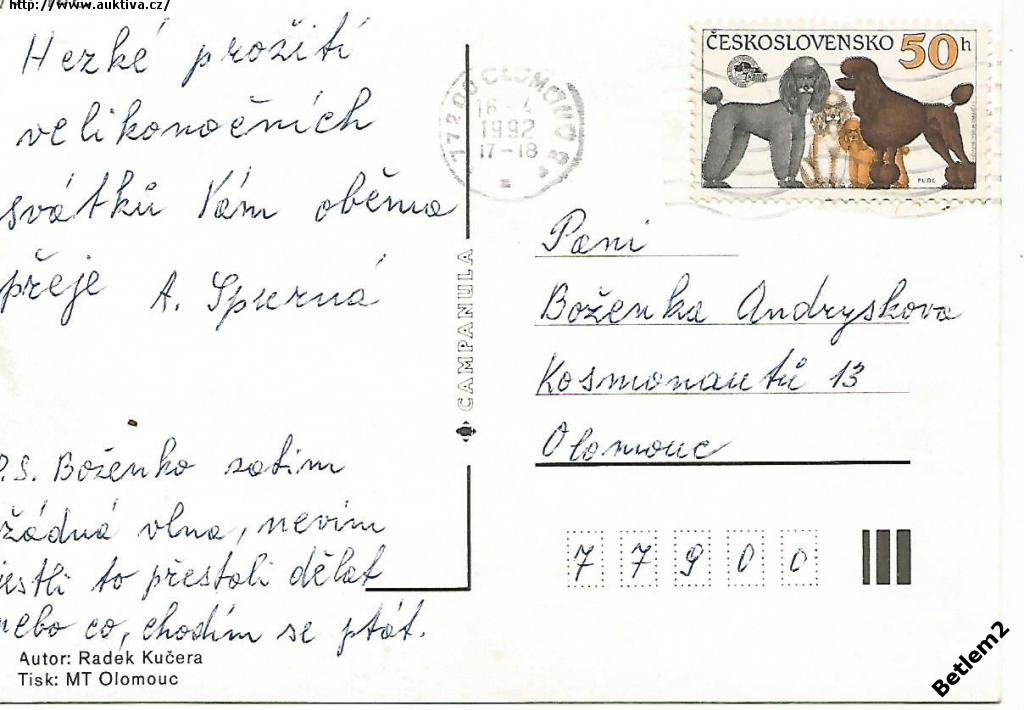 http://www.auktiva.cz/
Hezké prožití
velikonočních
svátků Vám oběma
přeje A. Spurná
P.S. Boženko zatim
žádná vlna, nevím
jestli to přestali dělat
nebo co, chodím se ptát.
Autor: Radek Kučera
Tisk: MT Olomouc
CAMPANULA
772 00 OLOMOUC 2
1992
17-18
ČESKOSLOVENSKO 50h
PUDL
Paní
Boženka Andryskova
Kosmonautů 13
Olomouc
7 7 9 0 0
Betlem2